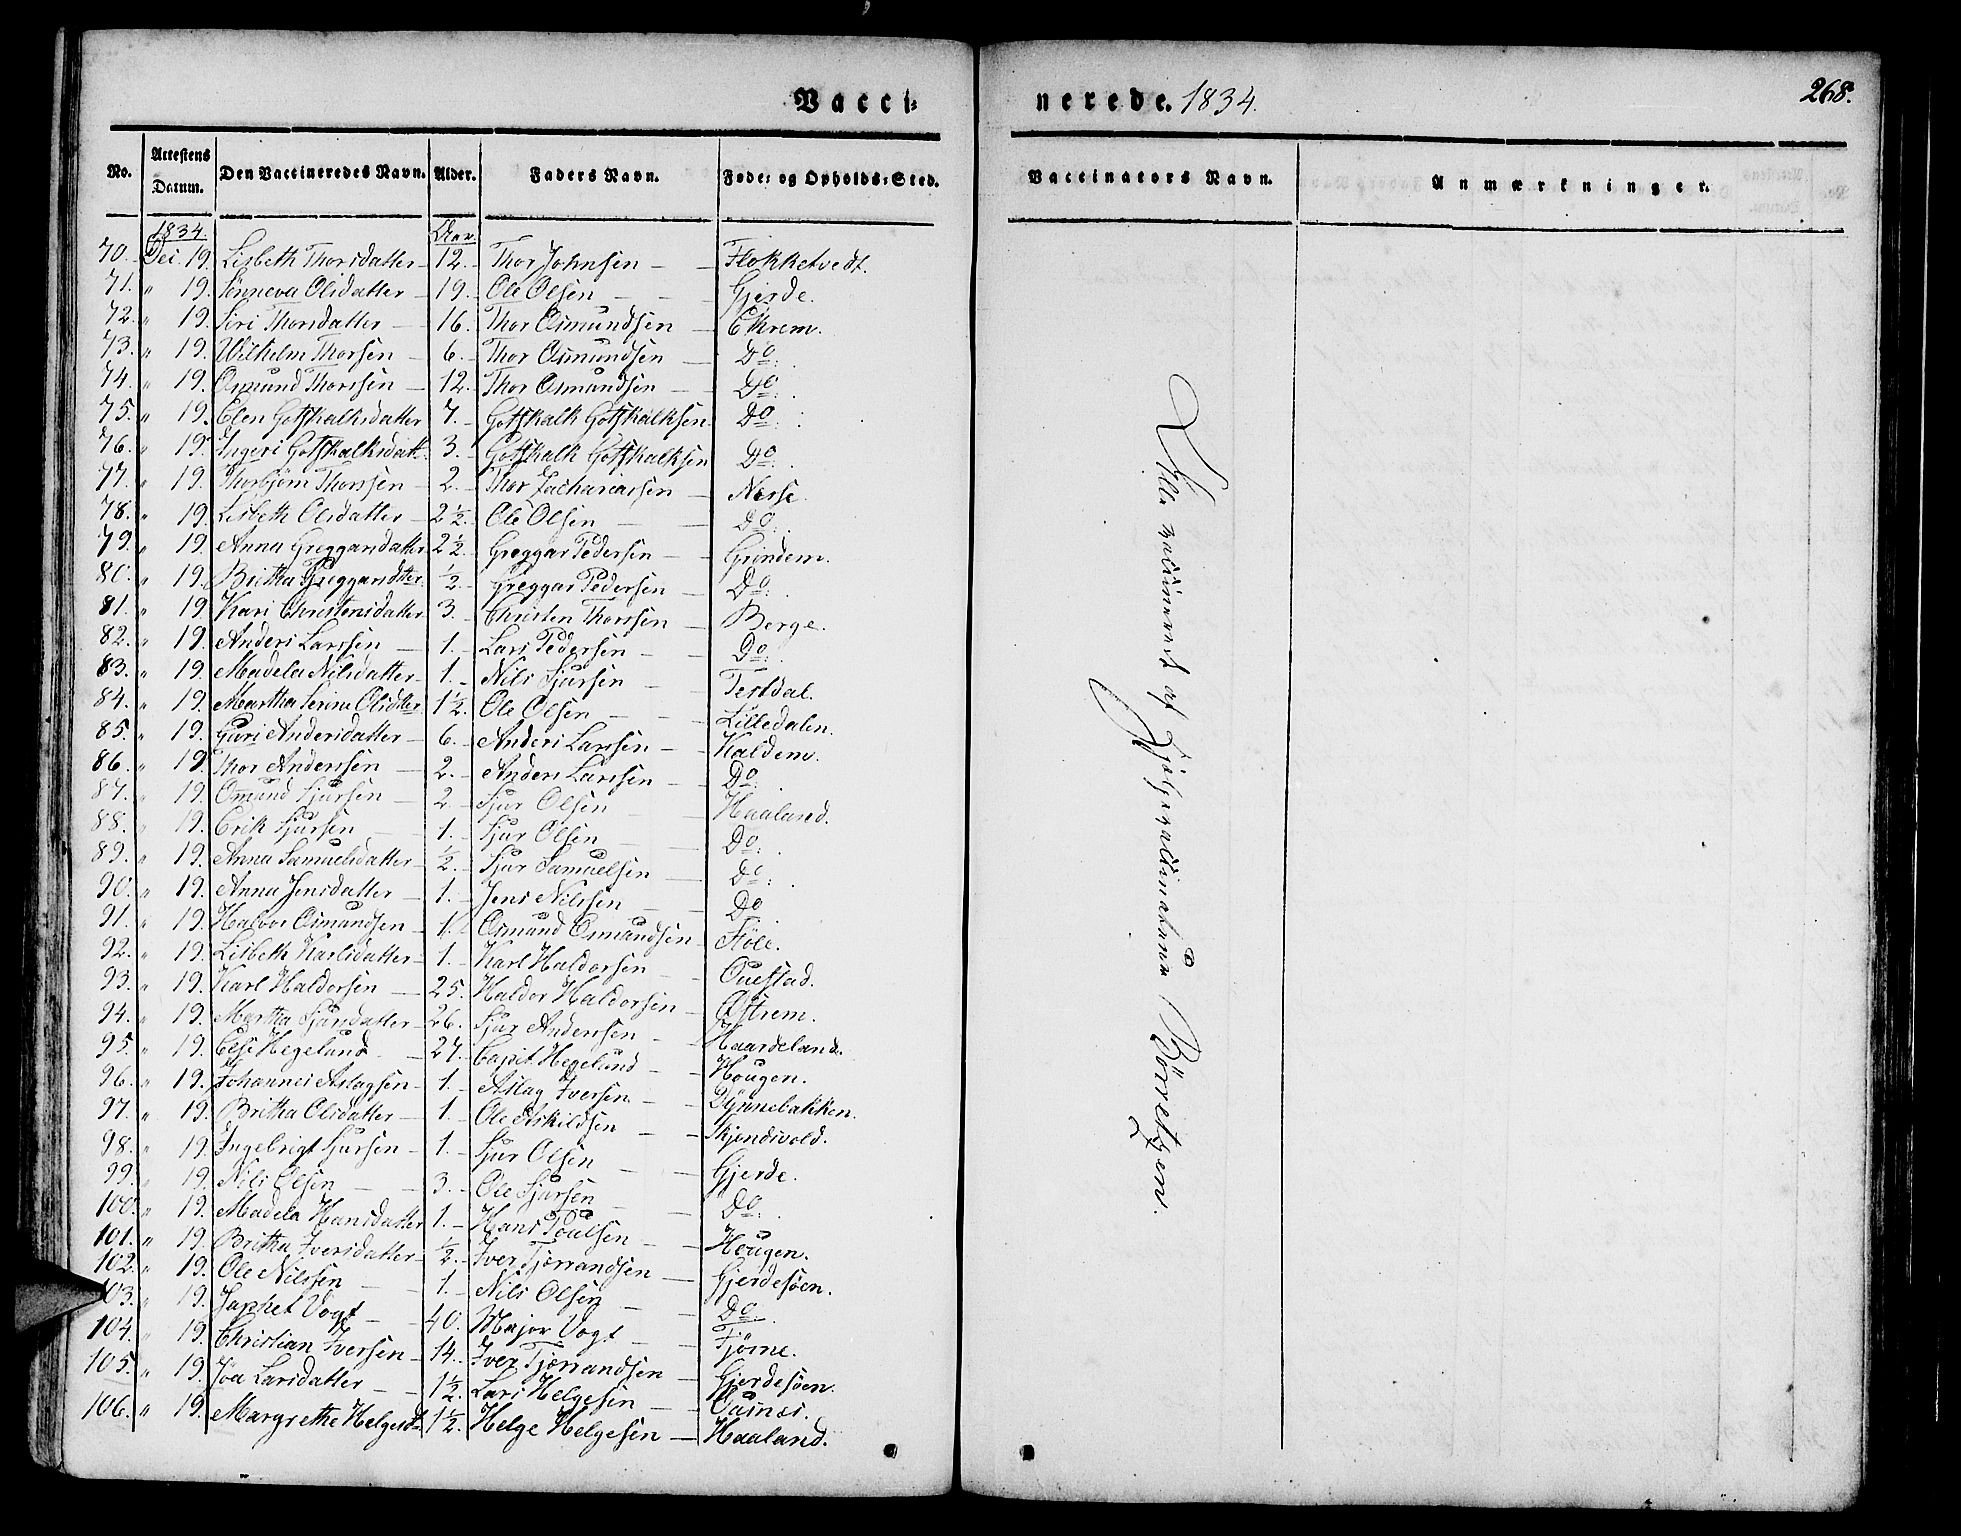 Vacci-
nerede. 1834.
268.
No. Attestens Datum. Den Vaccineredes Navn. Alder. Faders Navn. Føde- og Opholds-Sted.
Vaccinators Navn. Anmærkninger.
1834. Aar.
70. Dec. 19. Lisbeth Thorsdatter 12. Thor Johnsen Flokketvedt.
71. " 19. Sønneva Olsdatter 19. Ole Olsen Gjerde.
72. " 19. Siri Thorsdatter 16. Thor Osmundsen Ekrem.
73. " 19. Wilhelm Thorsen 6. Thor Osmundsen Do.
74. " 19. Osmund Thorssen 12. Thor Osmundsen Do.
75. " 19. Elen Gotskalksdatter 7. Gotskalk Gotskalksen Do.
76. " 19. Ingeri Gotskalksdatt. 3. Gotskalk Gotskalksen Do.
77. " 19. Thorbjørn Thorssen 2. Thor Zachariassen Nerse.
78. " 19. Lisbeth Olsdatter 2½. Ole Olsen Do.
79. " 19. Anna Greggarsdatter 2½. Greggar Pedersen Grindem.
80. " 19. Britha Greggarsdtter. ½. Greggar Pedersen Do.
81. " 19. Kari Christensdatter 3. Christen Thorssen Berge.
82. " 19. Anders Larssen 1. Lars Pedersen Do.
83. " 19. Madela Nilsdatter 1. Nils Sjursen Testdal.
84. " 19. Martha Serine Olsdtter 1½. Ole Olsen Lilledalen.
85. " 19. Guri Andersdatter 6. Anders Larssen Haldem.
86. " 19. Thor Anderssen 2. Anders Larssen Do.
87. " 19. Ommund Sjursen 2. Sjur Olsen Haaland.
88. " 19. Erik Sjursen 1. Sjur Olsen Do.
89. " 19. Anna Samuelsdatter ½. Sjur Samuelsen Do.
90. " 19. Anna Jensdatter 1. Jens Nilssen Do
91. " 19. Halvor Osmundsen 1. Osmund Osmundsen Støle.
92. " 19. Lisbeth Karlsdatter 1. Karl Haldorsen Ouestad.
93. " 19. Karl Haldorsen 25. Haldor Haldorsen Østrem.
94. " 19. Martha Sjursdatter 26. Sjur Anderssen Haardeland.
95. " 19. Else Hegelund 27. Capit Hegelund Hougen.
96. " 19. Johannes Aslagsen 1. Aslag Iversen Dynnebakken.
97. " 19. Britha Olsdatter 1. Ole Askildsen Skjendsvold.
98. " 19. Ingebrigt Sjursen 1. Sjur Olsen Gjerde.
99. " 19. Nils Olsen 3. Ole Sjursen Do.
100. " 19. Madela Hansdatter 1. Hans Poulsen Hougen.
101. " 19. Britha Iversdatter ½. Iver Tjerrandsen Gjerdesøen.
102. " 19. Ole Nilssen 1. Nils Olsen Do.
103. " 19. Japhet Vogt 40. Major Vogt Fjørne.
104. " 19. Christian Iversen 14. Iver Tjerrandsen Gjerdesøen.
105. " 19. Joa Larsdatter 1½. Lars Helgesen Ousnes.
106. " 19. Margrethe Helgesdt. 1½. Helge Helgesen Haaland.
Alle vaccineret af Hjelpevaccinateur Børretzen.